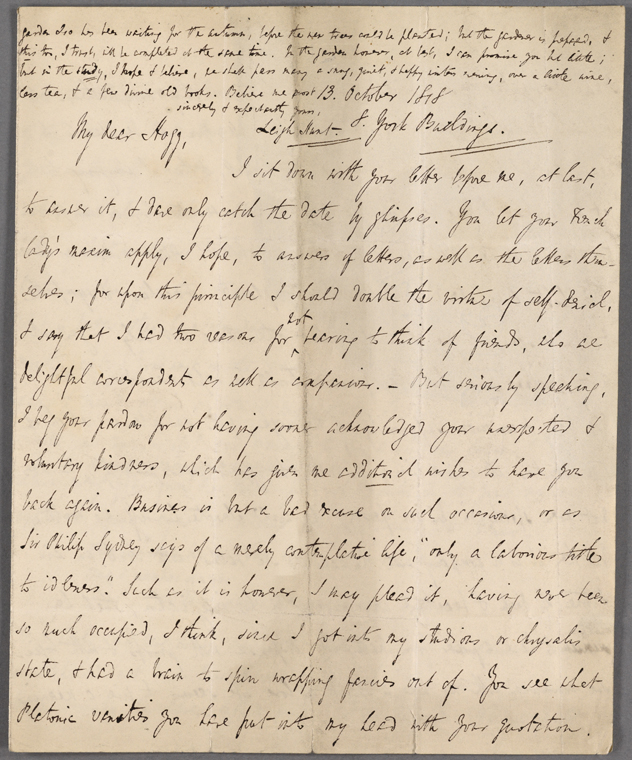 garden also has been waiting for the autumn, before the new trees could be planted; but the gardener is prepared, &
this too, I trust, will be completed at the same time. In the garden however, at last, I can promise you no ;
but in the study, I hope & believe, we shall pass many a snug, quiet, & happy winter evening, over a wine,
less tea, & a few divine old books. Believe me most
13. October 1818
sincerely & expectantly yours,
Leigh Hunt.
8. York Buildings.
My dear Hogg,
I sit down with your letter before me, at last,
to answer it, & dare only catch the date by glimpses. You let your French
lady's maxim apply, I hope, to answers of letters, as well as the letters them-
selves; for upon this principle I should double the virtue of self-denial,
& say that I had two reasons for not bearing to think of friends, who are
delightful correspondents as well as companions. — But seriously speaking,
I beg your pardon for not having sooner acknowledged your unexpected &
voluntary kindness, which has given me additional wishes to have you
back again. Business is but a bad excuse on such occasions, or as
Sir Philip Sydney says of a merely contemplative life, "only a laborious title
to idleness." Such as it is however, I may plead it, having never been
so much occupied, I think, since I got into my studious or chrysalis
state, & had a brain to spin wrapping fancies out of. You see what
Platonic vanities you have put into my head with your quotation.